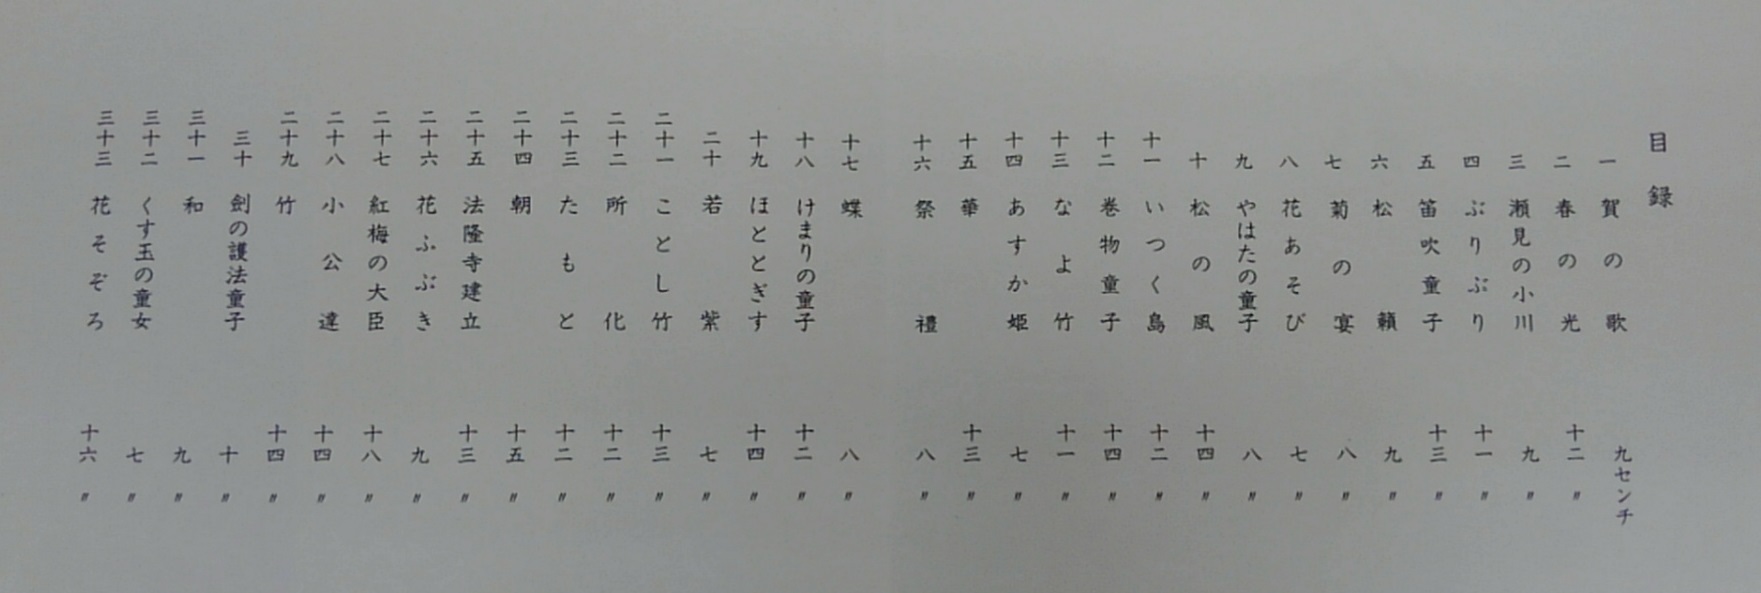 目録
一 賀の歌 九センチ
二 春の光 十二〃
三 瀬見の小川 九〃
四 ぶりぶり 十一〃
五 笛吹童子 十三〃
六 松籟 九〃
七 菊の宴 八〃
八 花あそび 七〃
九 やはたの童子 八〃
十 松の風 十四〃
十一 いつく島 十二〃
十二 巻物童子 十四〃
十三 なよ竹 十一〃
十四 あすか姫 七〃
十五 華 十三〃
十六 祭禮 八〃
十七 蝶 八〃
十八 けまりの童子 十二〃
十九 ほととぎす 十四〃
二十 若紫 七〃
二十一 ことし竹 十三〃
二十二 所化 十二〃
二十三 たもと 十二〃
二十四 朝 十五〃
二十五 法隆寺建立 十三〃
二十六 花ふぶき 九〃
二十七 紅梅の大臣 十八〃
二十八 小公達 十四〃
二十九 竹 十四〃
三十 劍の護法童子 十〃
三十一 和 九〃
三十二 くす玉の童女 七〃
三十三 花そぞろ 十六〃